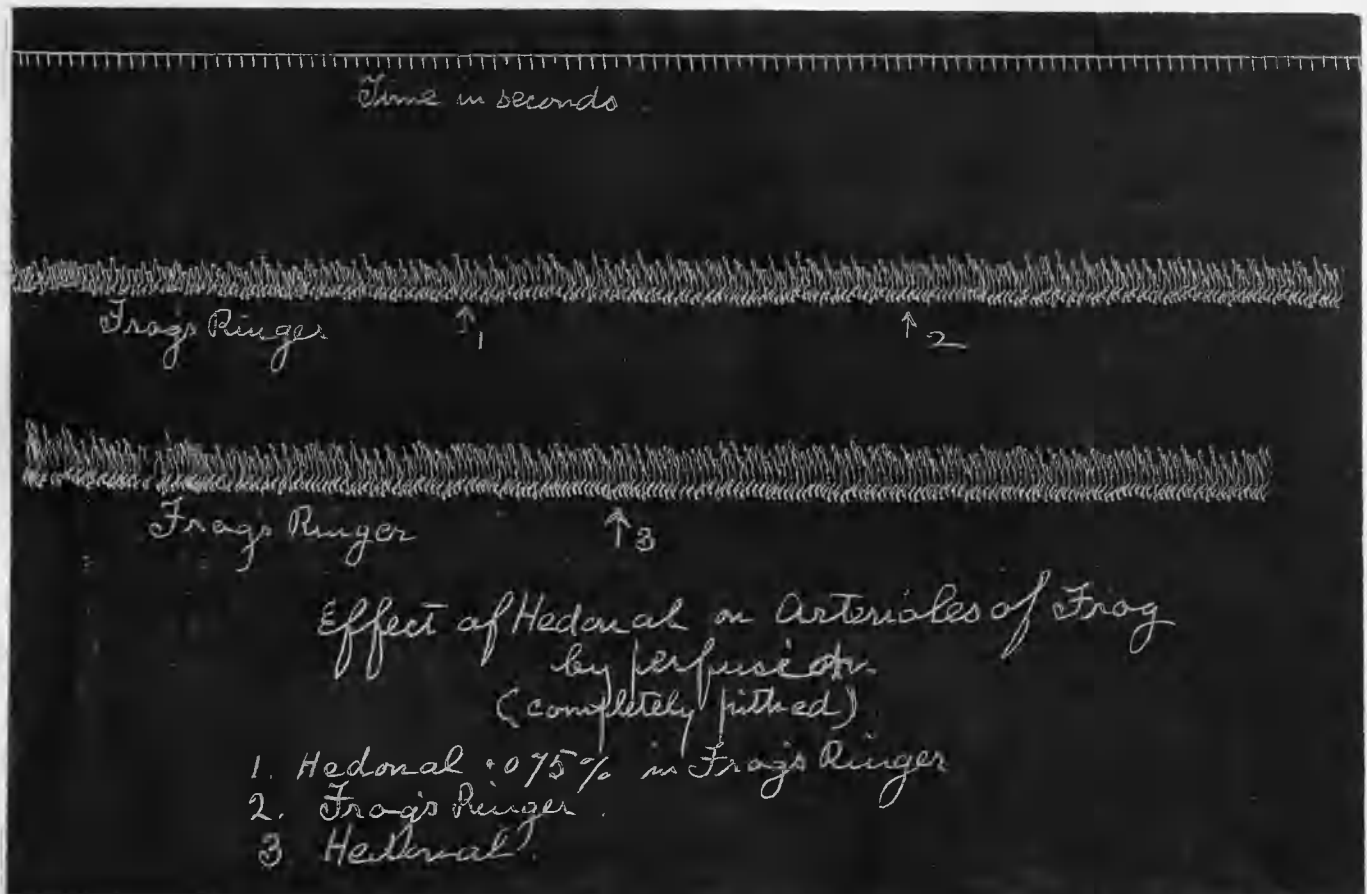 Time in seconds.
Frog's Ringer
↑1
↑2
Frog's Ringer
↑3
Effect of Hedonal on Arterioles of Frog
by perfusion
(completely pithed)
1. Hedonal .075% in Frog's Ringer
2. Frog's Ringer.
3 Hedonal.